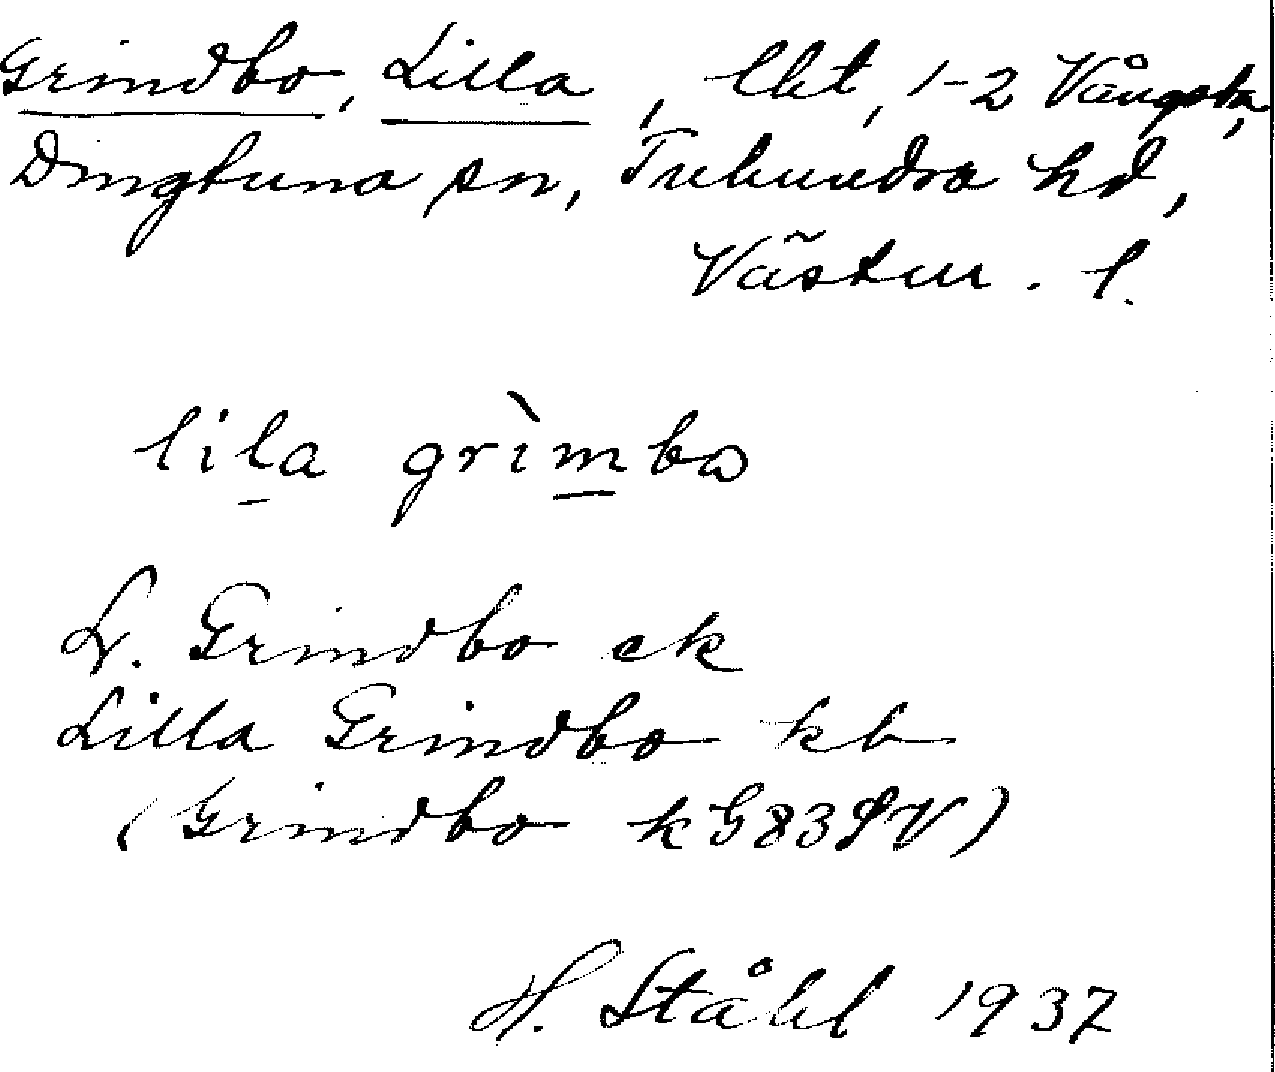 Grindbo, Lilla, lht, 1-2 Vångsta,
Dingtuna sn, Tuhundra hd,
Västm. l.
lila grìmbω
L. Grindbo ek
Lilla Grindbo kb
(Grindbo k G83SV)
H. Ståhl 1937